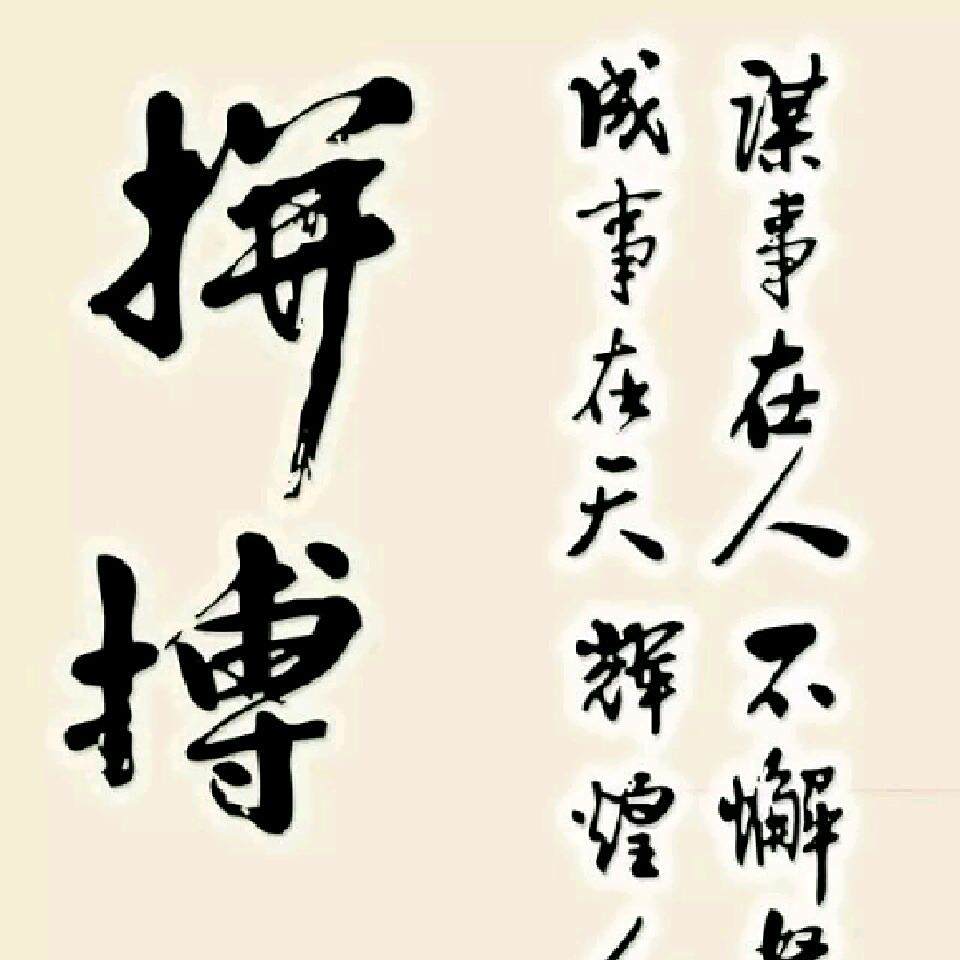 谋事在人 不懈
成事在天 辉煌
拼搏